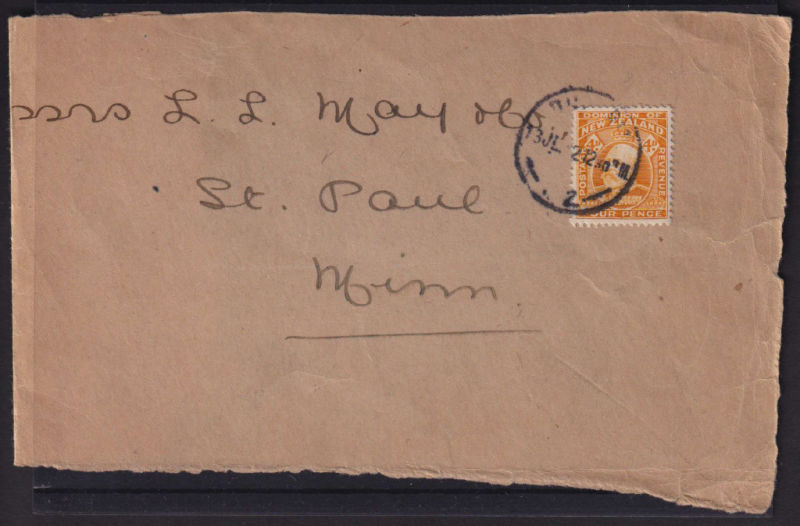 L. L. May & Co
St. Paul
Minn.
DOMINION OF
NEW ZEALAND
POSTAGE
REVENUE
4D
FOUR PENCE
13 JL
2